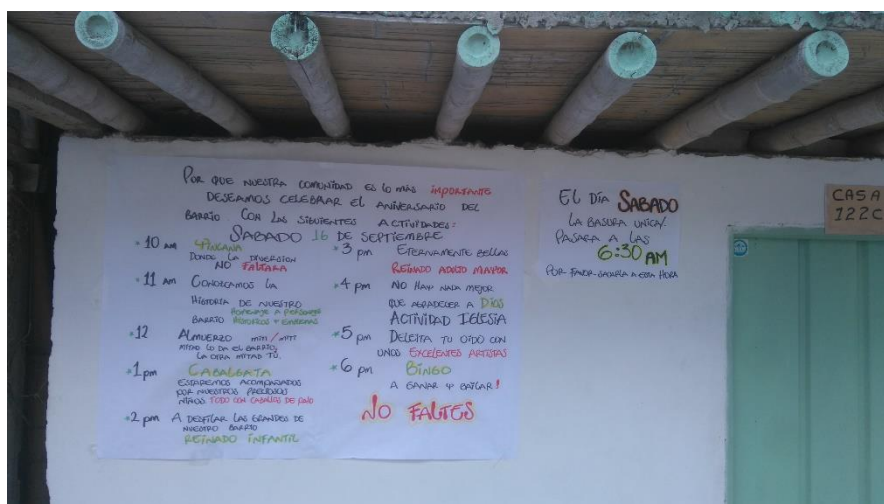 POR QUE NUESTRA COMUNIDAD ES lo MAS IMPORTANTE
DESEAMOS CELEBRAR El ANIVERSARIO DEL
BARRIO CON LAS SIGUIENTES ACTIVIDADES:
SABADO 16 DE SEPTIEMBRE
* 10 AM YINCANA
DONDE LA DIVERSION
NO FALTARA
* 11 AM CONOZCAMOS LA
HISTORIA DE NUESTRO
HOMENAJE A PERSONAJES
BARRIO
* 12 ALMUERZO MITI/MITI
MITAD LO DA EL BARRIO,
LA OTRA MITAD TÚ.
* 1 pm CABALGATA
ESTAREMOS ACOMPAÑADOS
POR NUESTROS PRECIOSOS
NIÑOS TODO CON CABALLITOS DE PALO
* 2 pm A DESFILAR LAS GRANDES DE
NUESTRO BARRIO
REINADO INFANTIL
* 3 pm ETERNAMENTE BELLAS
REINADO ADULTO MAYOR
* 4 pm NO HAY NADA MEJOR
QUE AGRADECER A DIOS
ACTIVIDAD IGLESIA
* 5 pm DELEITA TU OIDO CON
UNOS EXCELENTES ARTISTAS
* 6 pm BINGO
A GANAR Y BAILAR!
NO FALTES
EL DÍA SABADO
LA BASURA UNICA/
PASARA A LAS
6:30 AM
POR FAVOR SACARLA A ESTA HORA
CASA
122C